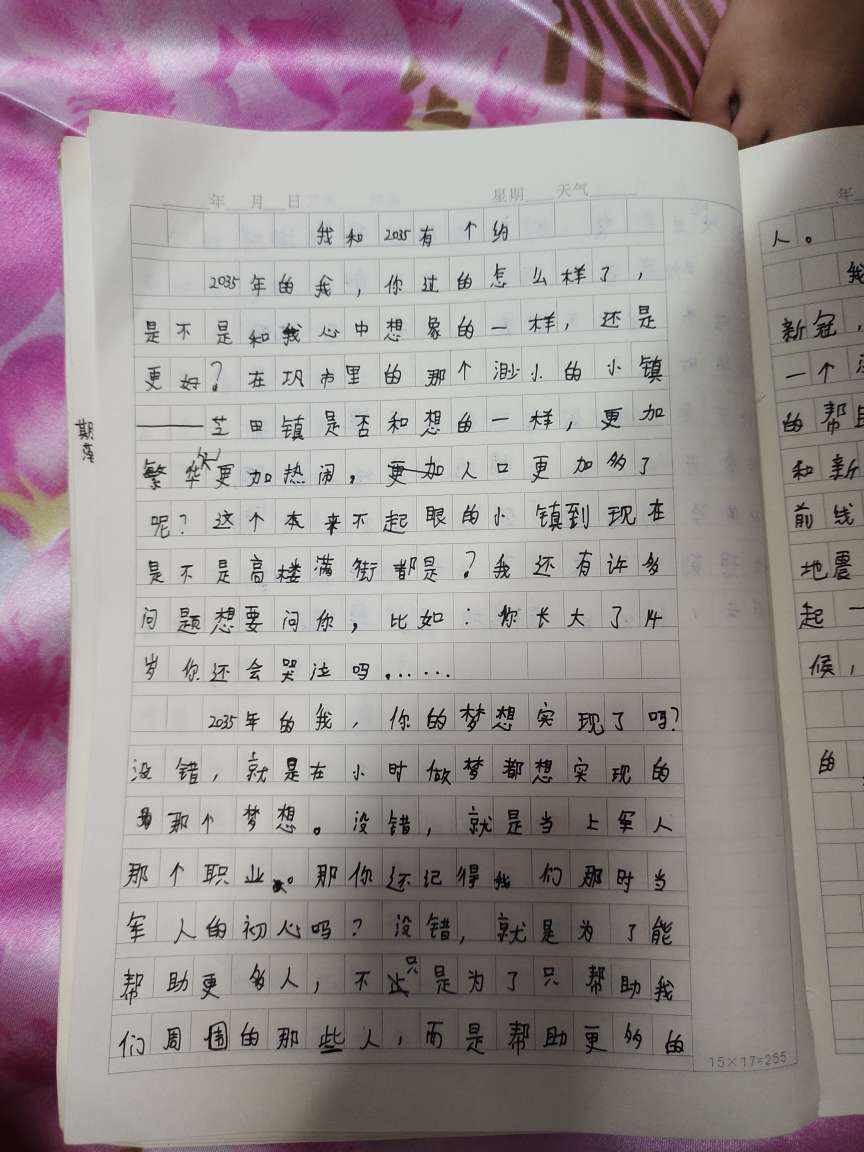 年 月 日 星期 天气
我和2035有个约
2035年的我，你过的怎么样了，
是不是和我心中想象的一样，还是
更好？在巩市里的那个渺小的小镇
——芝田镇是否和想的一样，更加
繁华更加热闹，更加人口更加多了
呢？这个本来不起眼的小镇到现在
是不是高楼满街都是？我还有许多
问题想要问你，比如：你长大了14
岁你还会哭泣吗……
2035年的我，你的梦想实现了吗？
没错，就是在小时做梦都想实现的
那个梦想。没错，就是当上军人
那个职业。那你还记得我们那时当
军人的初心吗？没错，就是为了能
帮助更多人，不只是为了只帮助我
们周围的那些人，而是帮助更多的
15×17=255
期落
年
人。
我
新冠，
一个
的帮
和新
前线
地震
起一
候，
的